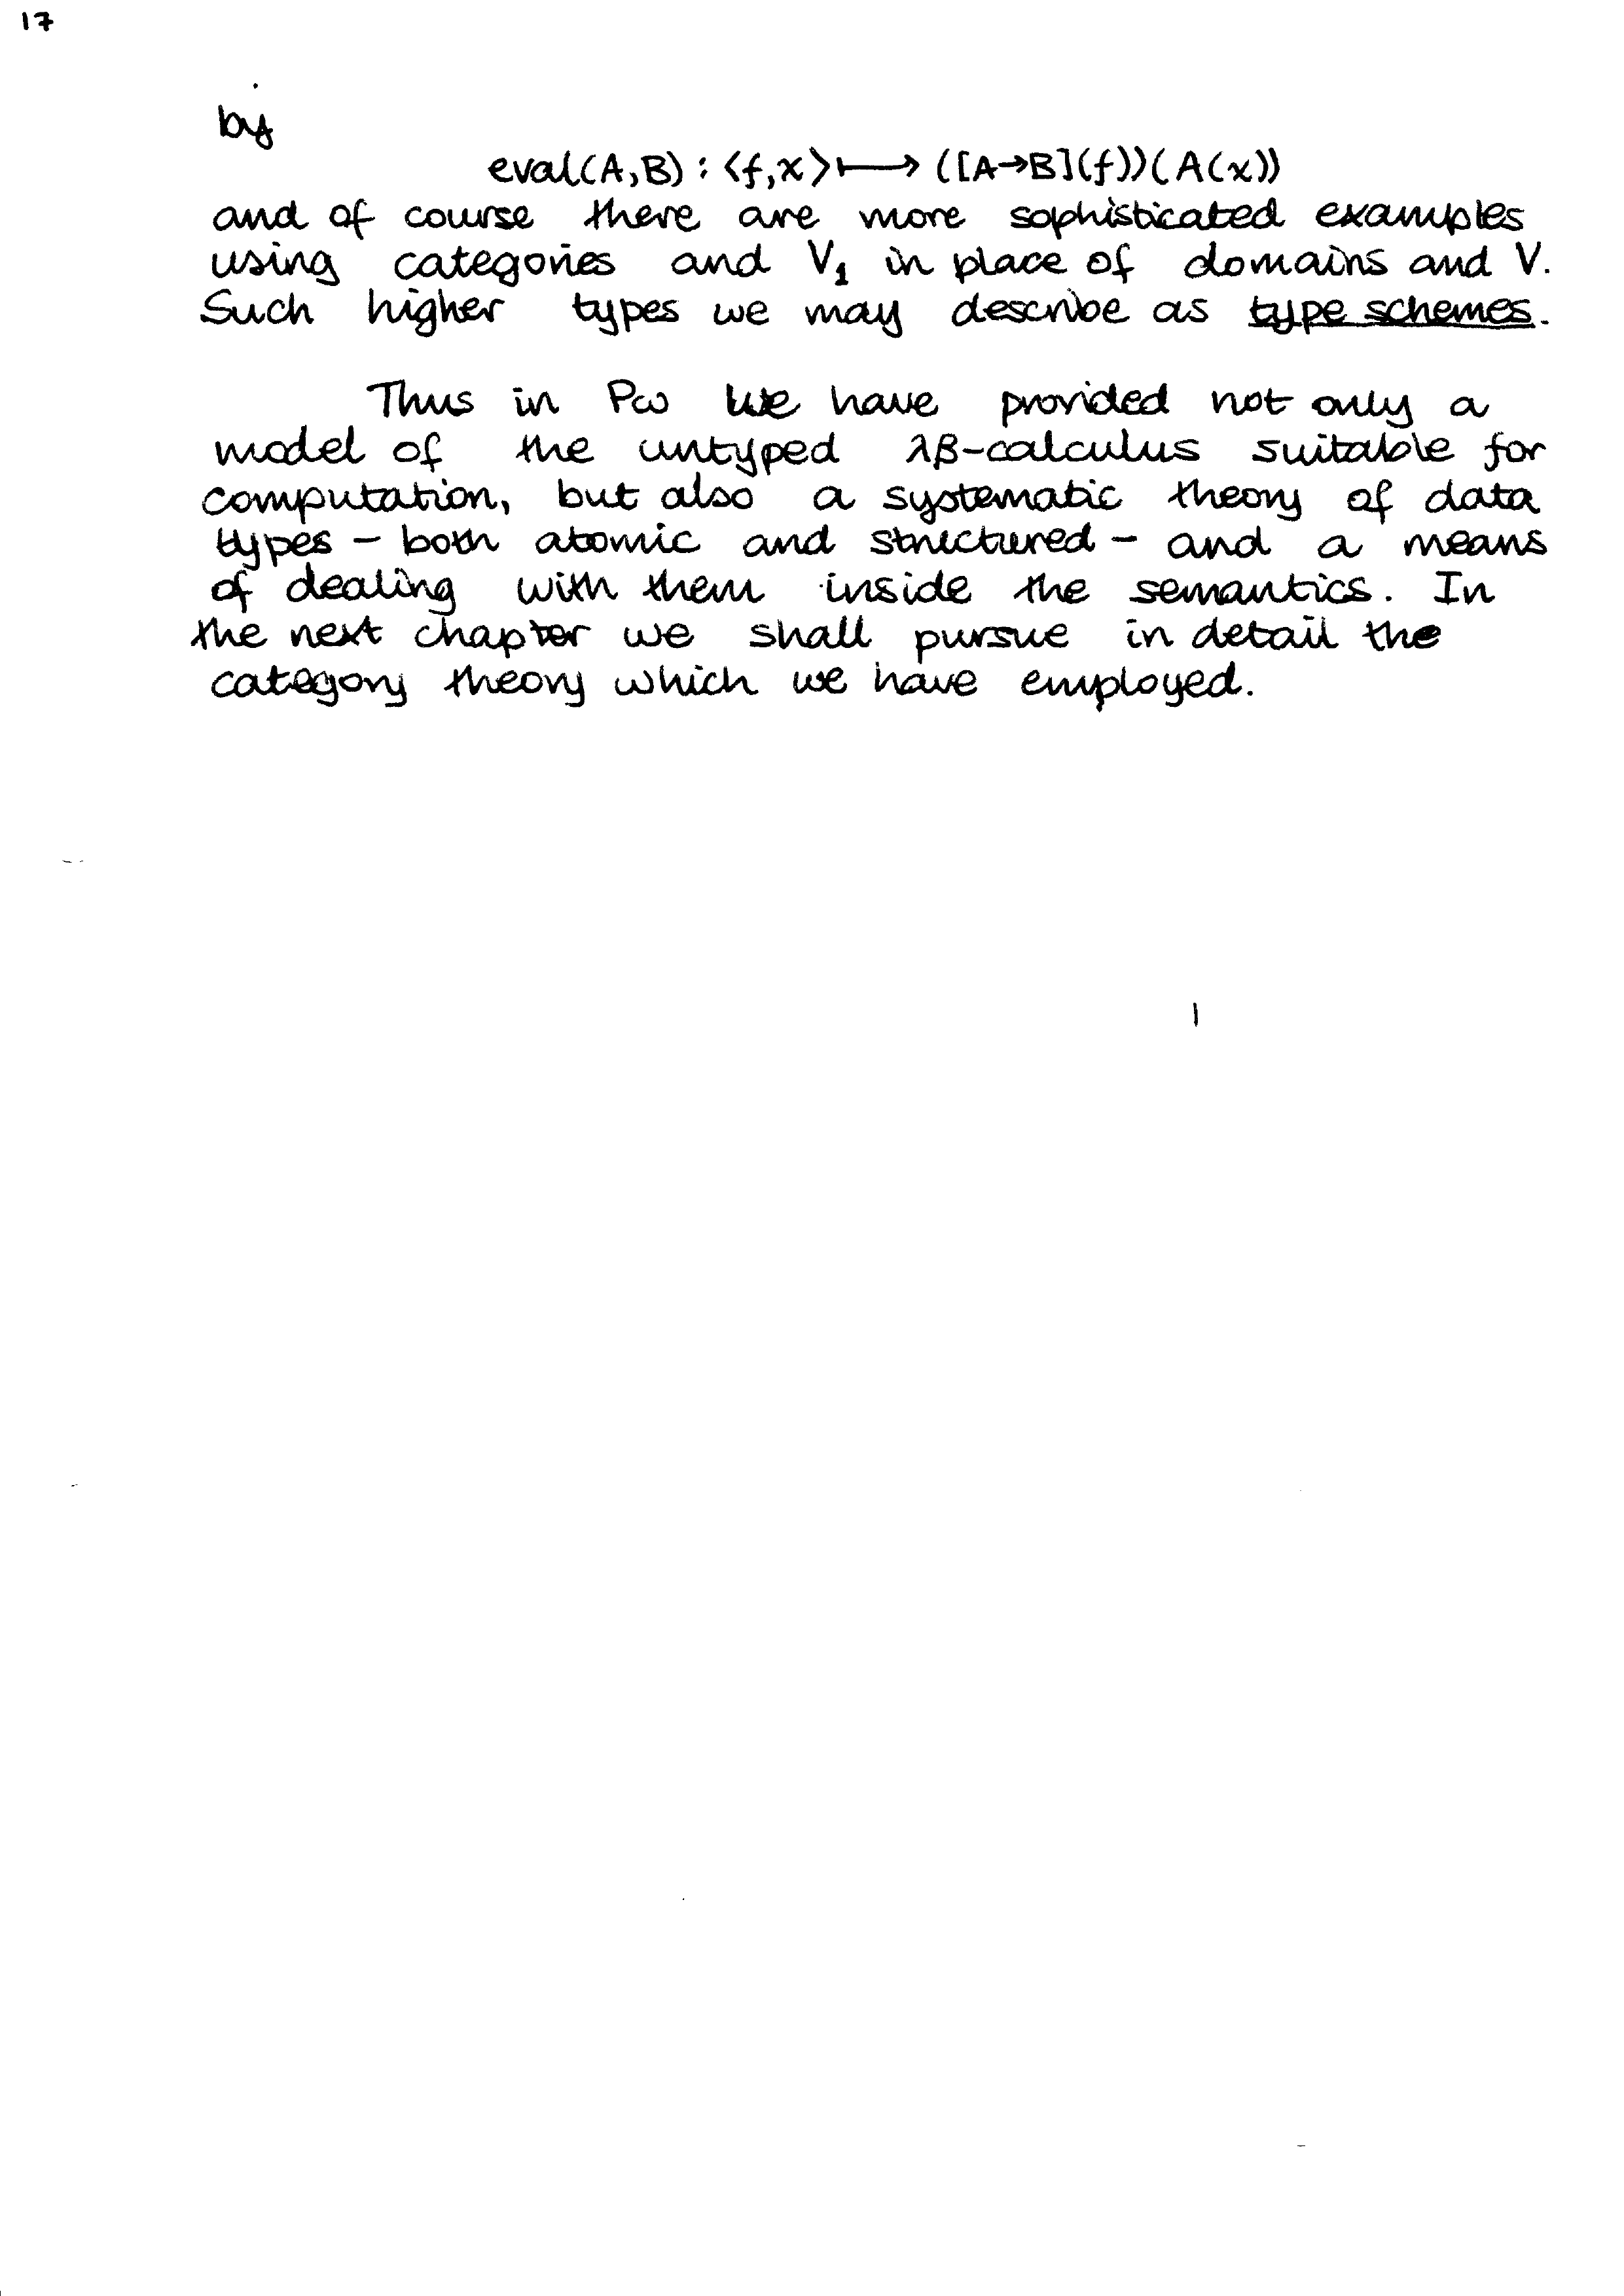 17
by
eval(A,B) : ⟨f,x⟩ ⟼ ([A→B](f))(A(x))
and of course there are more sophisticated examples
using categories and V₁ in place of domains and V.
Such higher types we may describe as type schemes.
Thus in Pω we have provided not only a
model of the untyped λβ-calculus suitable for
computation, but also a systematic theory of data
types – both atomic and structured – and a means
of dealing with them inside the semantics. In
the next chapter we shall pursue in detail the
category theory which we have employed.